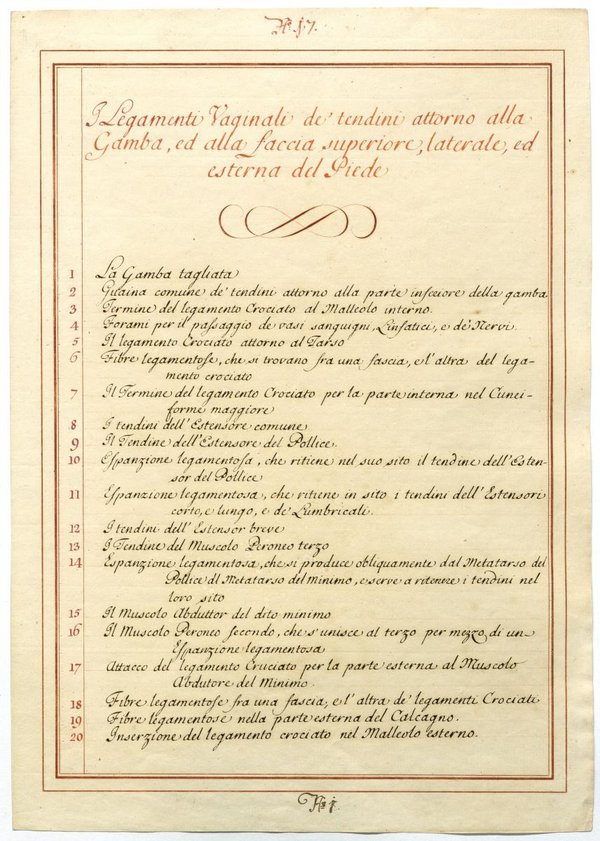 I Legamenti Vaginali de' tendini attorno alla
Gamba, ed alla faccia superiore, laterale, ed
esterna del Piede
1 La Gamba tagliata
2 Guaina comune de' tendini attorno alla parte inferiore della gamba
3 Termine del legamento Crociato al Malleolo interno.
4 Forami per il passaggio de vasi sanguigni, Linfatici, e de' Nervi.
5 Il legamento Crociato attorno al Tarso
6 Fibre legamentose, che si trovano fra una fascia, e l'altra del lega-
mento crociato
7 Il Termine del legamento Crociato per la parte interna nel Cunei-
forme maggiore
8 I tendini dell'Estensore comune
9 Il Tendine dell'Estensore del Pollice.
10 Espanzione legamentosa, che ritiene nel suo sito il tendine dell'Esten-
sor del Pollice
11 Espanzione legamentosa, che ritiene in sito i tendini dell'Estensori
corto, e lungo, e de' Lumbricali.
12 I tendini dell'Estensor breve
13 I Tendine del Muscolo Peroneo terzo
14 Espanzione legamentosa, che si produce obliquamente dal Metatarso del
Pollice al Metatarso del minimo, e serve a ritenere i tendini nel
loro sito
15 Il Muscolo Abduttor del dito minimo
16 Il Muscolo Peroneo secondo, che s'unisce al terzo per mezzo di un
Espanzione legamentosa
17 Attacco del legamento Cruciato per la parte esterna al Muscolo
Abdutore del Minimo.
18 Fibre legamentose fra una fascia, e l'altra de' legamenti Crociati
19 Fibre legamentose nella parte esterna del Calcagno.
20 Inserzione del legamento crociato nel Malleolo esterno.